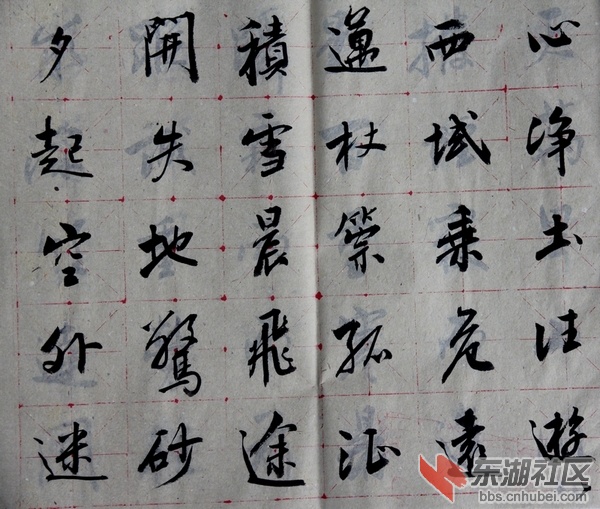 心净土往遊
西域乘危遠
邁杖策孤征
積雪晨飛途
開失地驚砂
夕起空外迷
东湖社区
bbs.cnhubei.com